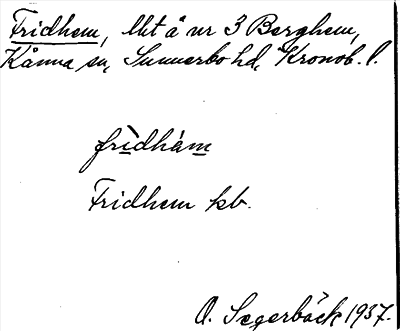 Fridhem, lht å nr 3 Berghem,
Kånna sn, Sunnerbo hd, Kronob. l.
frìdhám
Fridhem kb.
O. Segerbäck 1937.